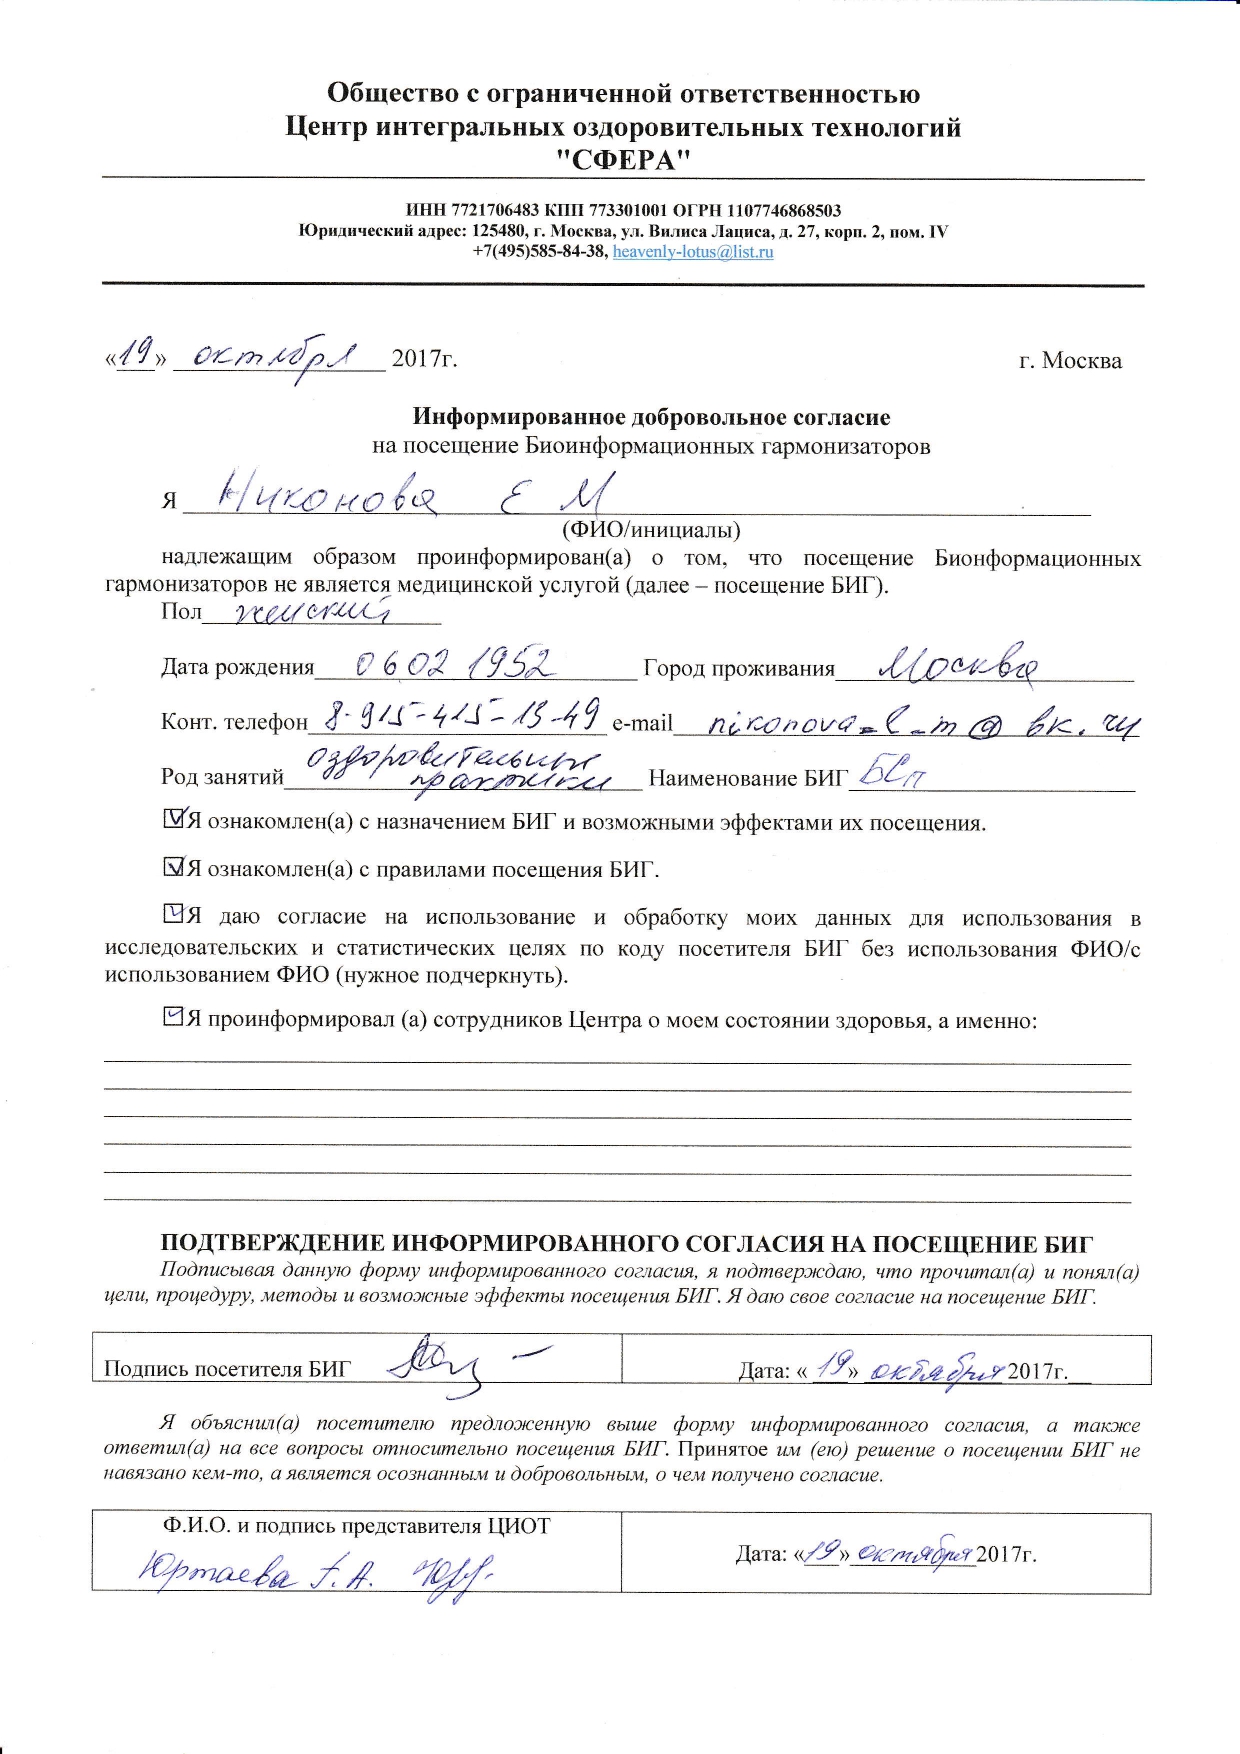 Общество с ограниченной ответственностью
Центр интегральных оздоровительных технологий
"СФЕРА"
ИНН 7721706483 КПП 773301001 ОГРН 1107746868503
Юридический адрес: 125480, г. Москва, ул. Вилиса Лациса, д. 27, корп. 2, пом. IV
+7(495)585-84-38, heavenly-lotus@list.ru
«19» октября 2017г. г. Москва
Информированное добровольное согласие
на посещение Биоинформационных гармонизаторов
Я Никонова Е М
(ФИО/инициалы)
надлежащим образом проинформирован(а) о том, что посещение Бионформационных
гармонизаторов не является медицинской услугой (далее – посещение БИГ).
Пол женский
Дата рождения 06 02 1952 Город проживания Москва
Конт. телефон 8-915-415-13-49 e-mail nikonova_e_m@bk.ru
оздоровительные
Род занятий практики Наименование БИГ БСП
Я ознакомлен(а) с назначением БИГ и возможными эффектами их посещения.
Я ознакомлен(а) с правилами посещения БИГ.
Я даю согласие на использование и обработку моих данных для использования в
исследовательских и статистических целях по коду посетителя БИГ без использования ФИО/с
использованием ФИО (нужное подчеркнуть).
Я проинформировал (а) сотрудников Центра о моем состоянии здоровья, а именно:
ПОДТВЕРЖДЕНИЕ ИНФОРМИРОВАННОГО СОГЛАСИЯ НА ПОСЕЩЕНИЕ БИГ
Подписывая данную форму информированного согласия, я подтверждаю, что прочитал(а) и понял(а)
цели, процедуру, методы и возможные эффекты посещения БИГ. Я даю свое согласие на посещение БИГ.
Подпись посетителя БИГ Дата: «19» октября 2017г.
Я объяснил(а) посетителю предложенную выше форму информированного согласия, а также
ответил(а) на все вопросы относительно посещения БИГ. Принятое им (ею) решение о посещении БИГ не
навязано кем-то, а является осознанным и добровольным, о чем получено согласие.
Ф.И.О. и подпись представителя ЦИОТ
Юртаева Г.А. Дата: «19» октября 2017г.